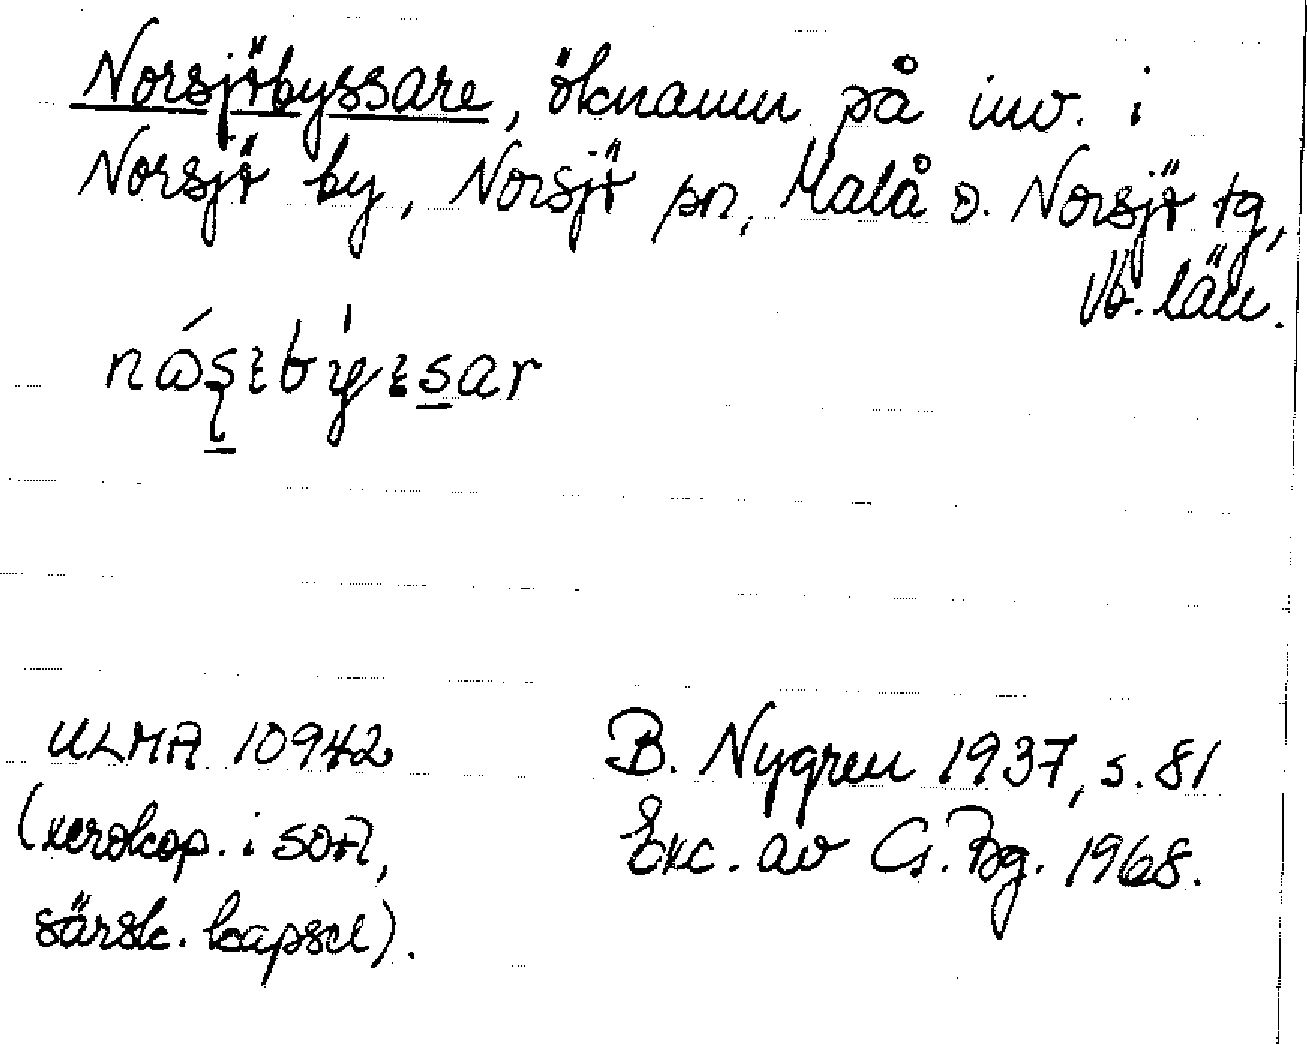 Norsjöbyssare, öknamn på inv. i
Norsjö by, Norsjö sn, Malå o. Norsjö tg,
Vb. län.
ULMA 10942
(xerokop. i SOFI,
särsk. kapsel).
B. Nygren 1937, s. 81
Exc. av G. Bg. 1968.